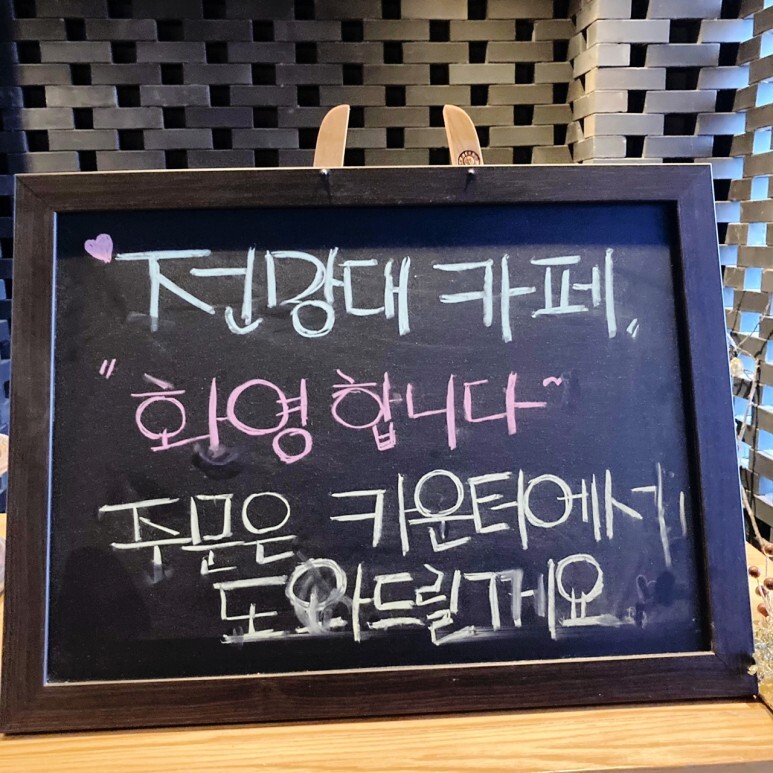 전망대 카페〃
〃화영합니다~
주문은 카운터에서
도와드릴게요